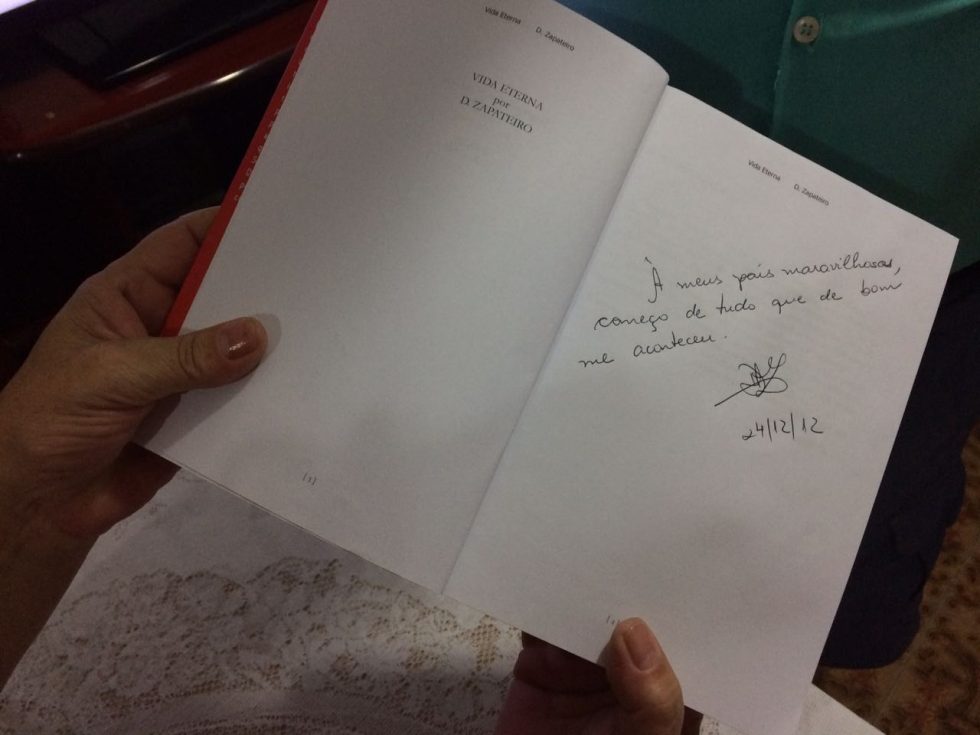 Vida Eterna D. Zapateiro
VIDA ETERNA
por
D. ZAPATEIRO
[3]
Vida Eterna D. Zapateiro
À meus pais maravilhosos,
começo de tudo que de bom
me aconteceu.
24/12/12
[4]